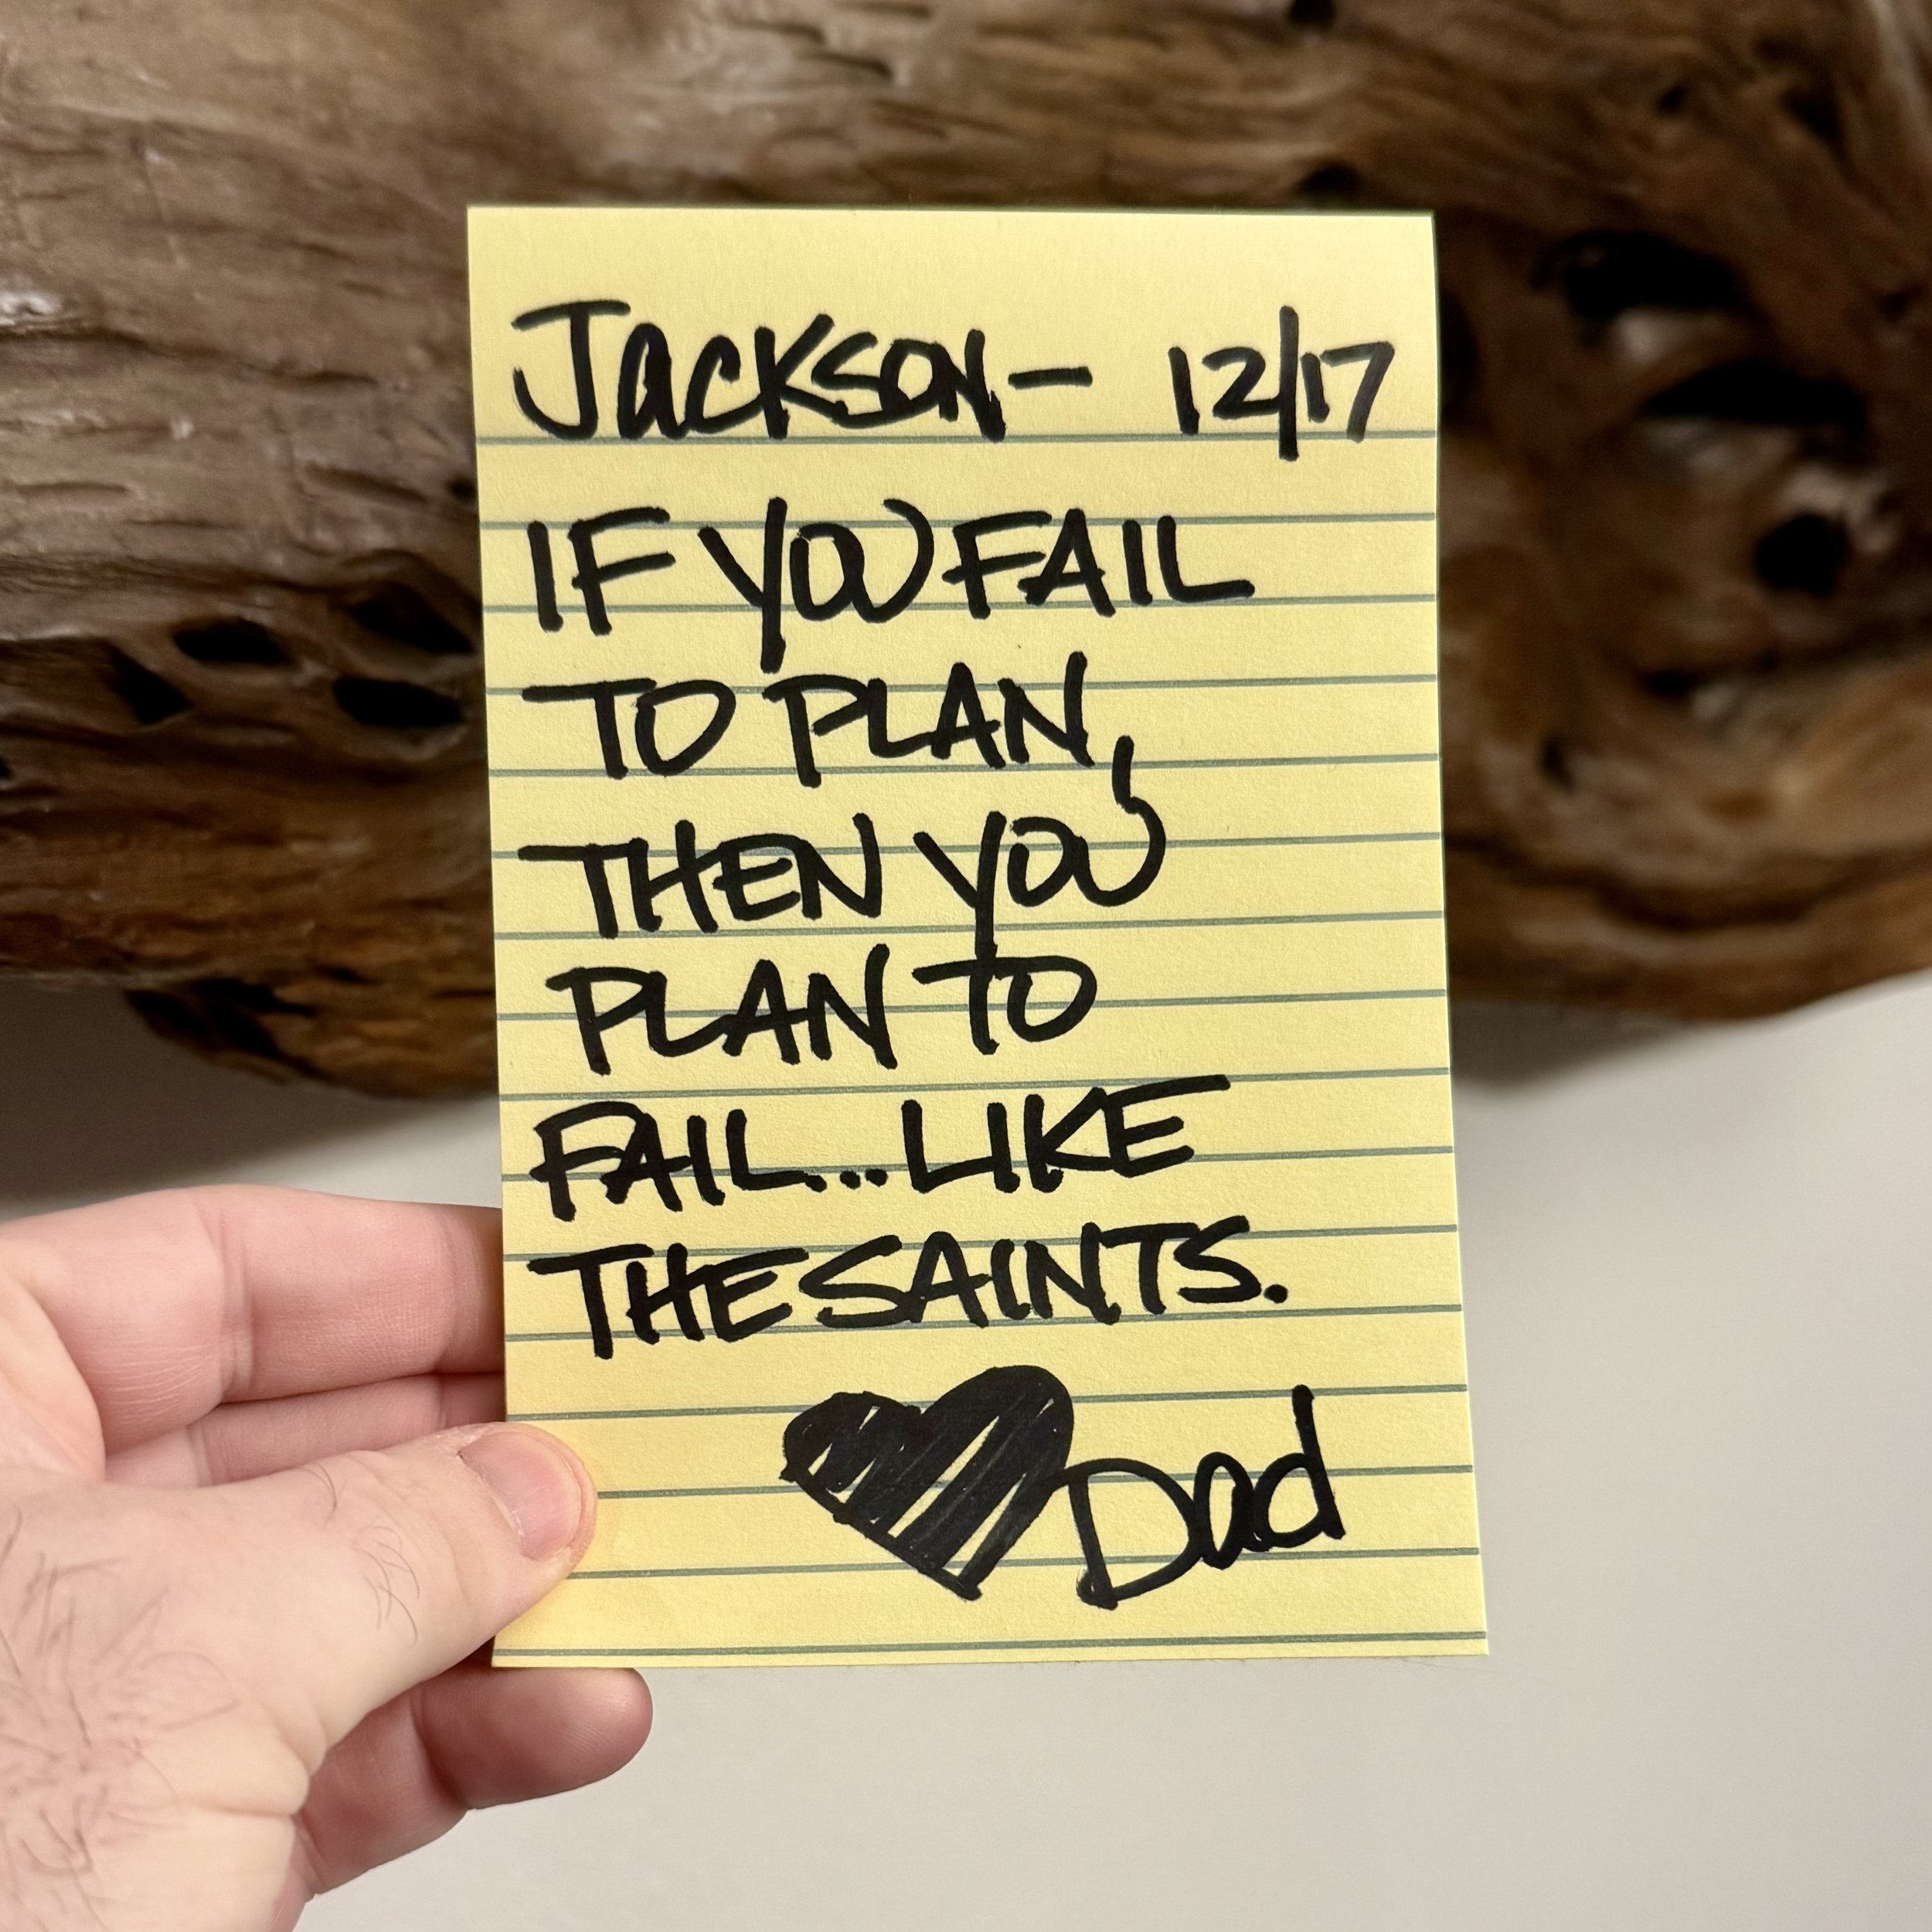 Jackson— 12/17
IF YOU FAIL
TO PLAN,
THEN YOU
PLAN TO
FAIL...LIKE
THE SAINTS.
Dad